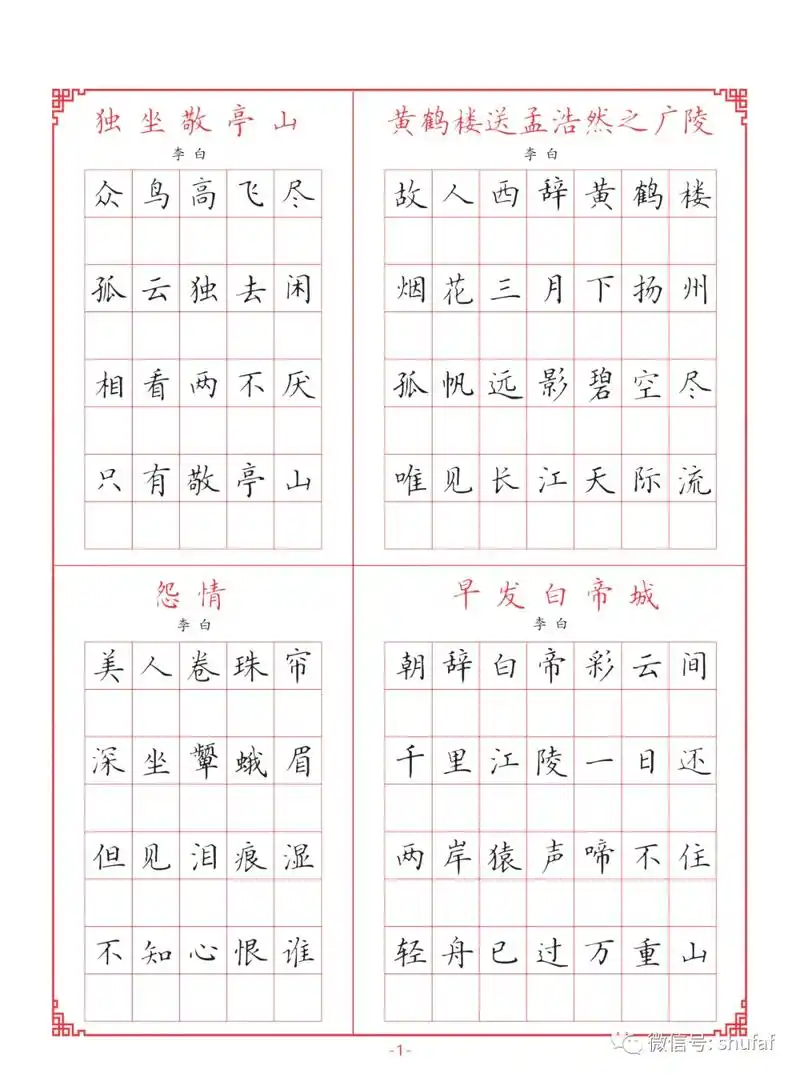 独坐敬亭山
李白
众鸟高飞尽
孤云独去闲
相看两不厌
只有敬亭山
黄鹤楼送孟浩然之广陵
李白
故人西辞黄鹤楼
烟花三月下扬州
孤帆远影碧空尽
唯见长江天际流
怨情
李白
美人卷珠帘
深坐颦蛾眉
但见泪痕湿
不知心恨谁
早发白帝城
李白
朝辞白帝彩云间
千里江陵一日还
两岸猿声啼不住
轻舟已过万重山
-1-
微信号: shufaf